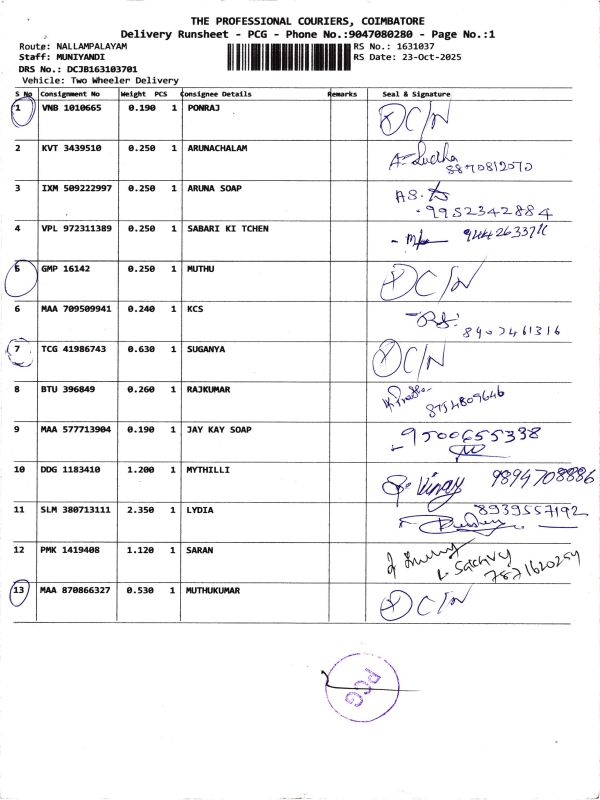 THE PROFESSIONAL COURIERS, COIMBATORE
Delivery Runsheet - PCG - Phone No.:9047080280 - Page No.:1
Route: NALLAMPALAYAM RS No.: 1631037
Staff: MUNIYANDI RS Date: 23-Oct-2025
DRS No.: DCJB163103701
Vehicle: Two Wheeler Delivery
S No Consignment No Weight PCS Consignee Details Remarks Seal & Signature
1 VNB 1010665 0.190 1 PONRAJ DC/N
2 KVT 3439510 0.250 1 ARUNACHALAM A. Sudha
8870812070
3 IXM 509222997 0.250 1 ARUNA SOAP AS.
9952342884
4 VPL 972311389 0.250 1 SABARI KI TCHEN
5 GMP 16142 0.250 1 MUTHU DC/N
6 MAA 709509941 0.240 1 KCS
8407461316
7 TCG 41986743 0.630 1 SUGANYA DC/N
8 BTU 396849 0.260 1 RAJKUMAR
8754809646
9 MAA 577713904 0.190 1 JAY KAY SOAP 9500655338
10 DDG 1183410 1.200 1 MYTHILLI Vinay 9894708886
11 SLM 380713111 2.350 1 LYDIA 8939557192
12 PMK 1419408 1.120 1 SARAN
13 MAA 870866327 0.530 1 MUTHUKUMAR DC/N
PCG